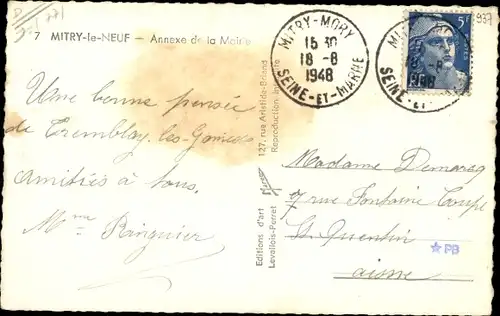 7 MITRY-le-NEUF - Annexe de la Mairie
MITRY-MORY
15 30
18-8
1948
SEINE-ET-MARNE
5F
937
Une bonne pensée
de Tremblay les Gonesse
Amitiés à tous.
Mme Ringuier
Editions d'art
Levallois-Perret
127, rue Aristide-Briand
Reproduction interdite
Madame Demarcq
7 rue Fontaine Coupe
St Quentin
aisne
PB